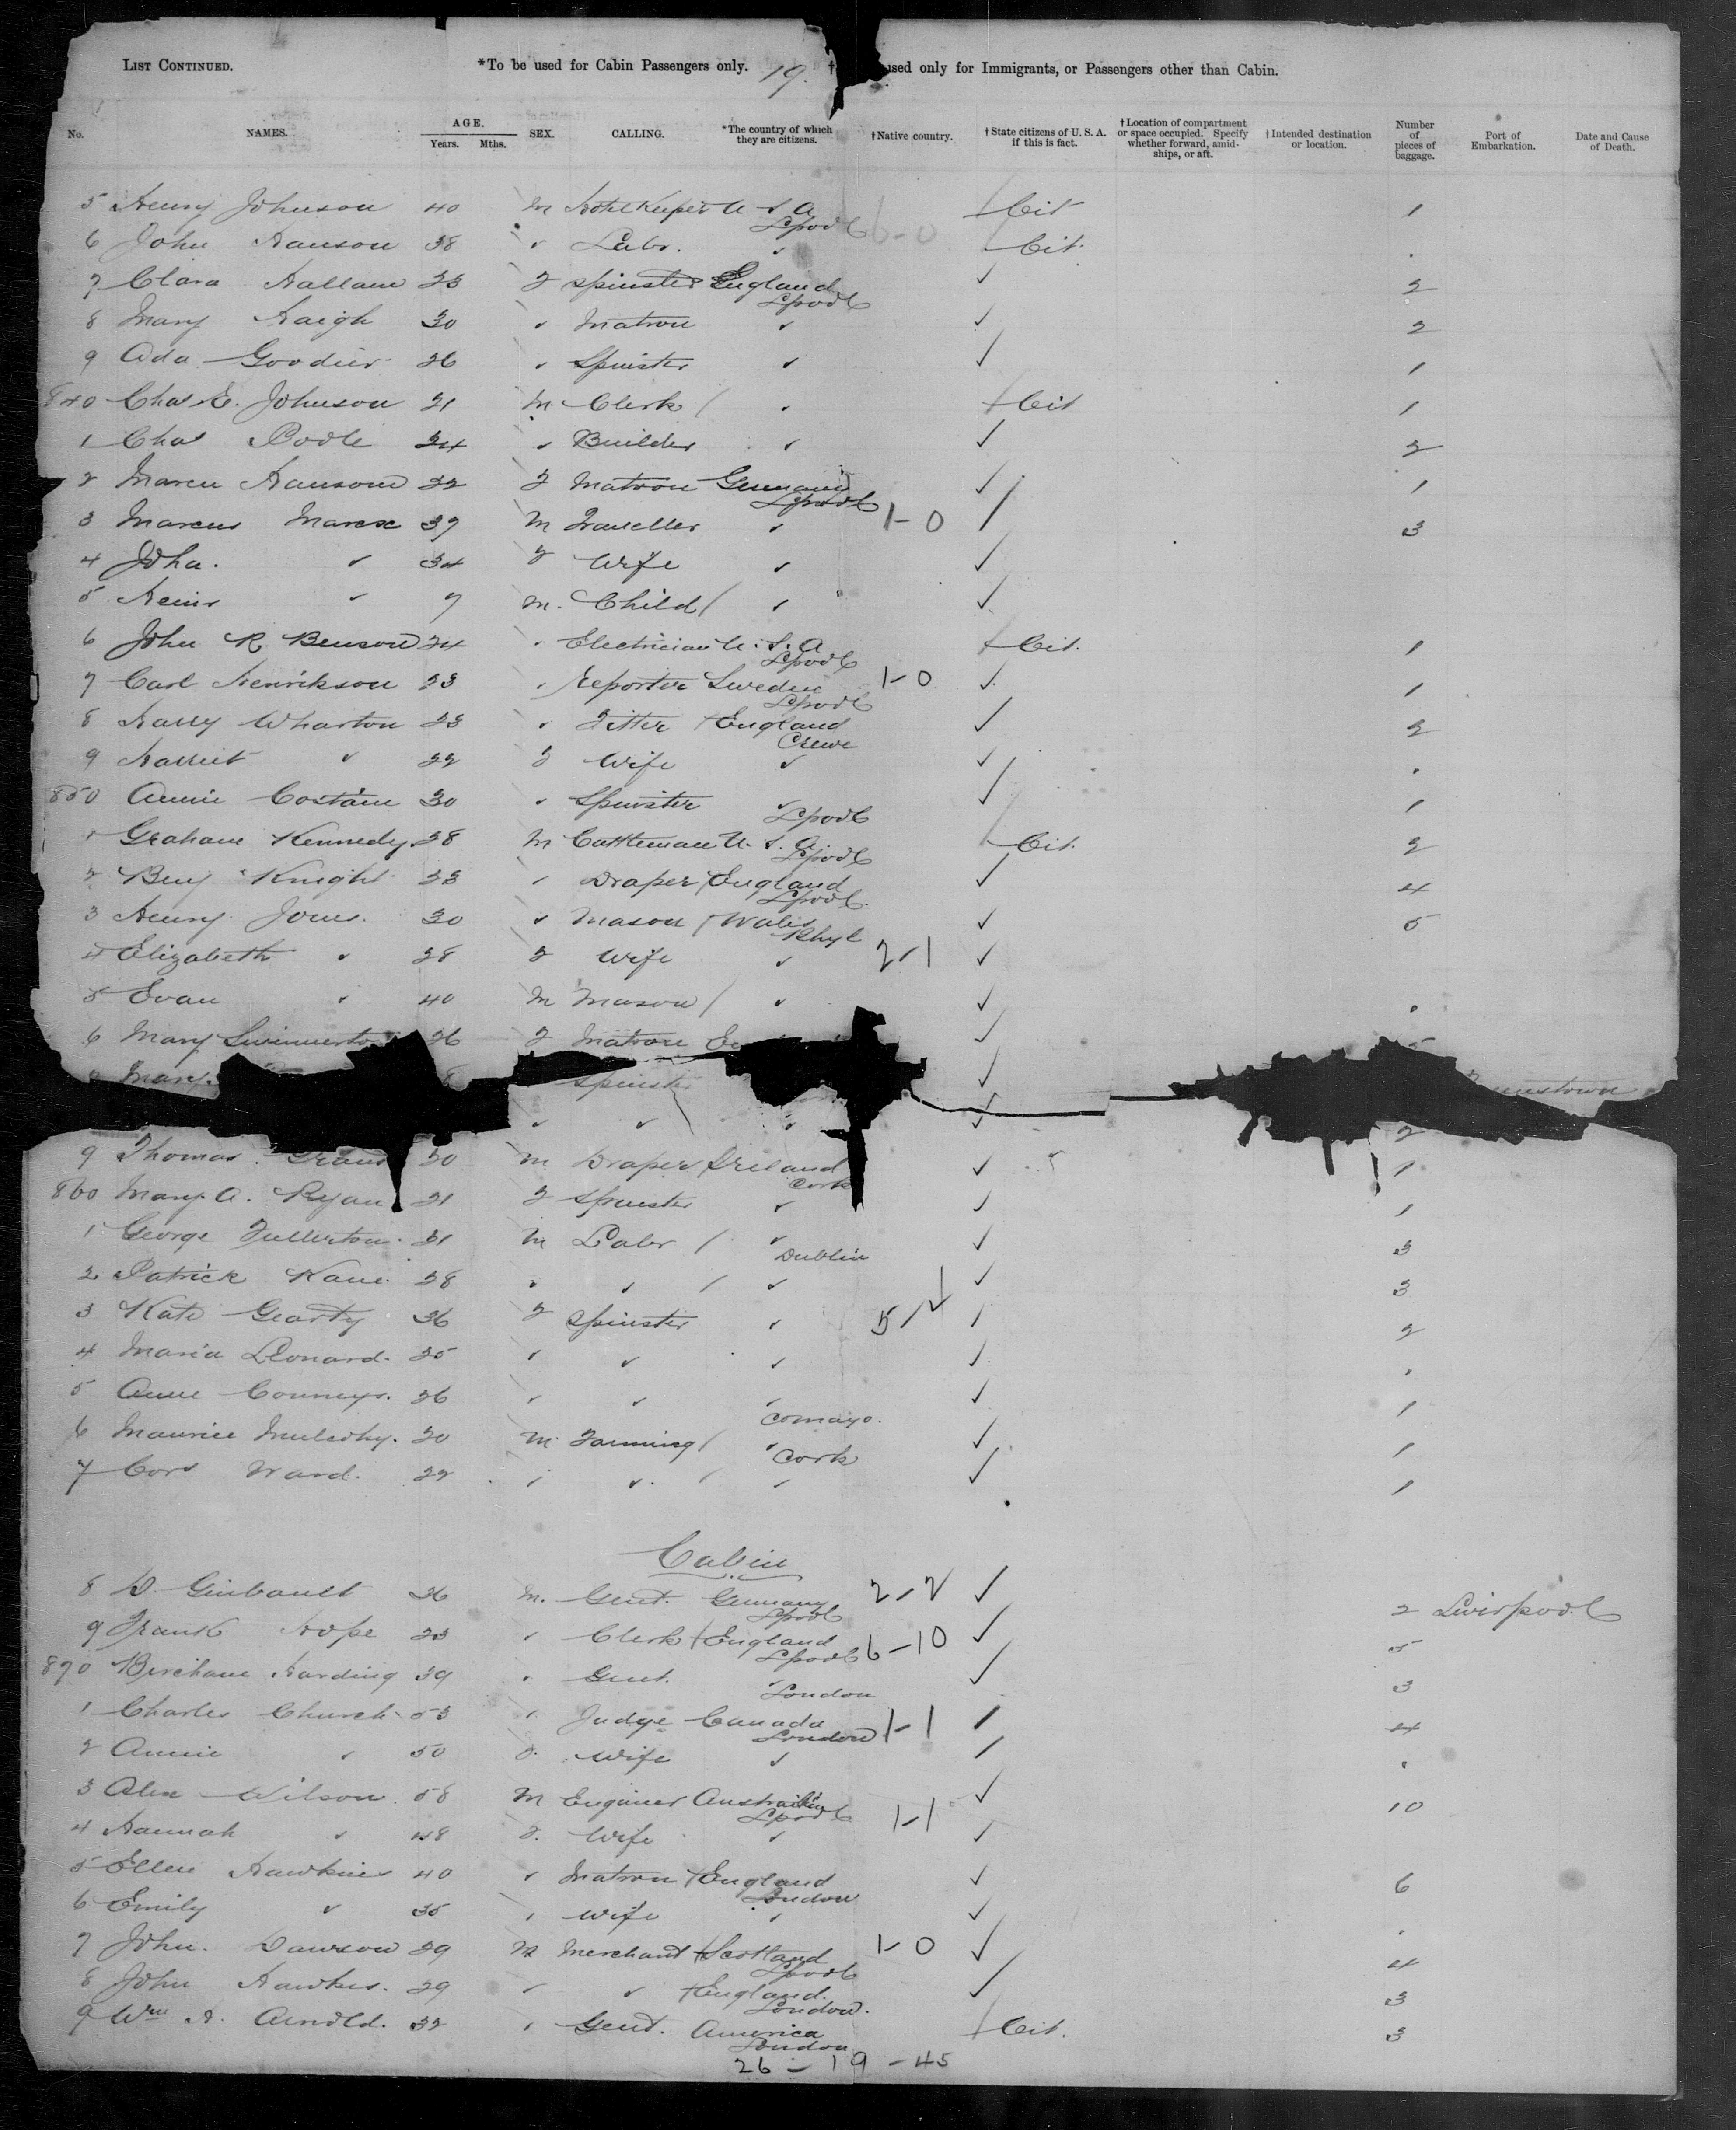 LIST CONTINUED. *To be used for Cabin Passengers only. 19. † used only for Immigrants, or Passengers other than Cabin.
No. NAMES. AGE. Years. Mths. SEX. CALLING. *The country of which they are citizens. †Native country. †State citizens of U. S. A. if this is fact. †Location of compartment or space occupied. Specify whether forward, amid-ships, or aft. †Intended destination or location. Number of pieces of baggage. Port of Embarkation. Date and Cause of Death.
5 Henry Johnson 40 M Hotel Keeper U S A Lpool Cit 1
6 John Hanson 38 " Labr. " 6-0 Cit.
7 Clara Hallam 23 F Spinster England Lpool ✓ 2
8 Mary Haigh 30 " Matron " ✓ 2
9 Ada Goodier 26 " Spinster " ✓ 1
840 Chas E. Johnson 21 M Clerk / " Cit 1
1 Chas Poole 24 " Builder " ✓ 2
2 Maren Hansom 32 F Matron Germany Lpool ✓ 1
3 Marcus Marcx 37 M Traveller " 1-0 / 3
4 Joha. " 34 F Wife " ✓
5 Heinr " 7 M. Child / " ✓
6 John R Benson 24 " Electrician U. S. A Lpool Cit. 1
7 Carl Henrikson 23 " Reporter Sweden Lpool 1-0 ✓ 1
8 Harry Wharton 23 " Fitter England Crewe ✓ 2
9 Harriet " 22 F Wife " ✓
850 Annie Costain 30 " Spinster " Lpool ✓ 1
1 Graham Kennedy 28 M Cattleman U. S. A. Lpool Cit. 2
2 Benj Knight 23 " Draper England Lpool. ✓ 4
3 Henry Jones. 30 " Mason / Wales Rhyl ✓ 5
4 Elizabeth " 28 F Wife " 2-1 ✓
5 Evan " 40 M Mason / " ✓
6 Mary 26 F Matron ✓
Mary. Spinster ✓
" " " ✓ 2
9 Thomas M Draper Ireland Cork ✓ 1
860 Mary A. Ryan 21 F Spinster " ✓ 1
1 George Fullerton. 21 M Labr / " Dublin ✓ 3
2 Patrick Kane. 28 " " / " ✓ 3
3 Kate Gearty 26 F Spinster " / 2
4 Maria Leonard. 25 " " " ✓
5 Anne 26 " " " Co mayo. ✓ 1
6 Maurice 20 M. Farming / " Cork ✓ 1
7 Ward. 22 " " / " ✓ 1
Cabin
8 36 M. Gent. Germany Lpool ✓ 2 Liverpool
9 Frank Hope 23 " Clerk / England Lpool 6-10 ✓ 5
870 Harding 39 " Gent. " London ✓ 3
1 Charles Church 53 " Judge Canada London 1-1 / 4
2 Annie " 50 F. Wife " /
3 Alex Wilson. 58 M Engineer Lpool ✓ 10
4 Hannah " 48 F. Wife " 1-1 ✓
5 Ellen Hawkins 40 " Matron England London ✓ 6
6 Emily " 35 " Wife " ✓
7 John. Dawson 29 M Merchant Scotland Lpool 1-0 ✓ 4
8 John Hawkes. 29 " " England. London. ✓ 3
9 Wm A. Arnold. 32 " Gent. America London Cit. 3
26 - 19 - 45